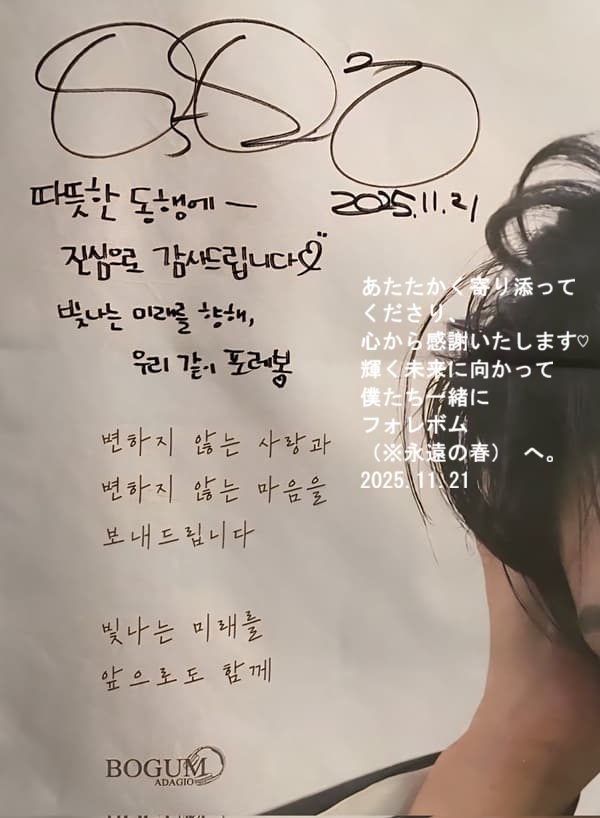 따뜻한 동행에 —
2025.11.21
진심으로 감사드립니다♡
빛나는 미래를 향해,
우리 같이 포레봄
あたたかく寄り添って
くださり、
心から感謝いたします♡
輝く未来に向かって
僕たち一緒に
フォレボム
（※永遠の春） へ。
2025.11.21
변하지 않는 사랑과
변하지 않는 마음을
보내드립니다
빛나는 미래를
앞으로도 함께
BOGUM
ADAGIO